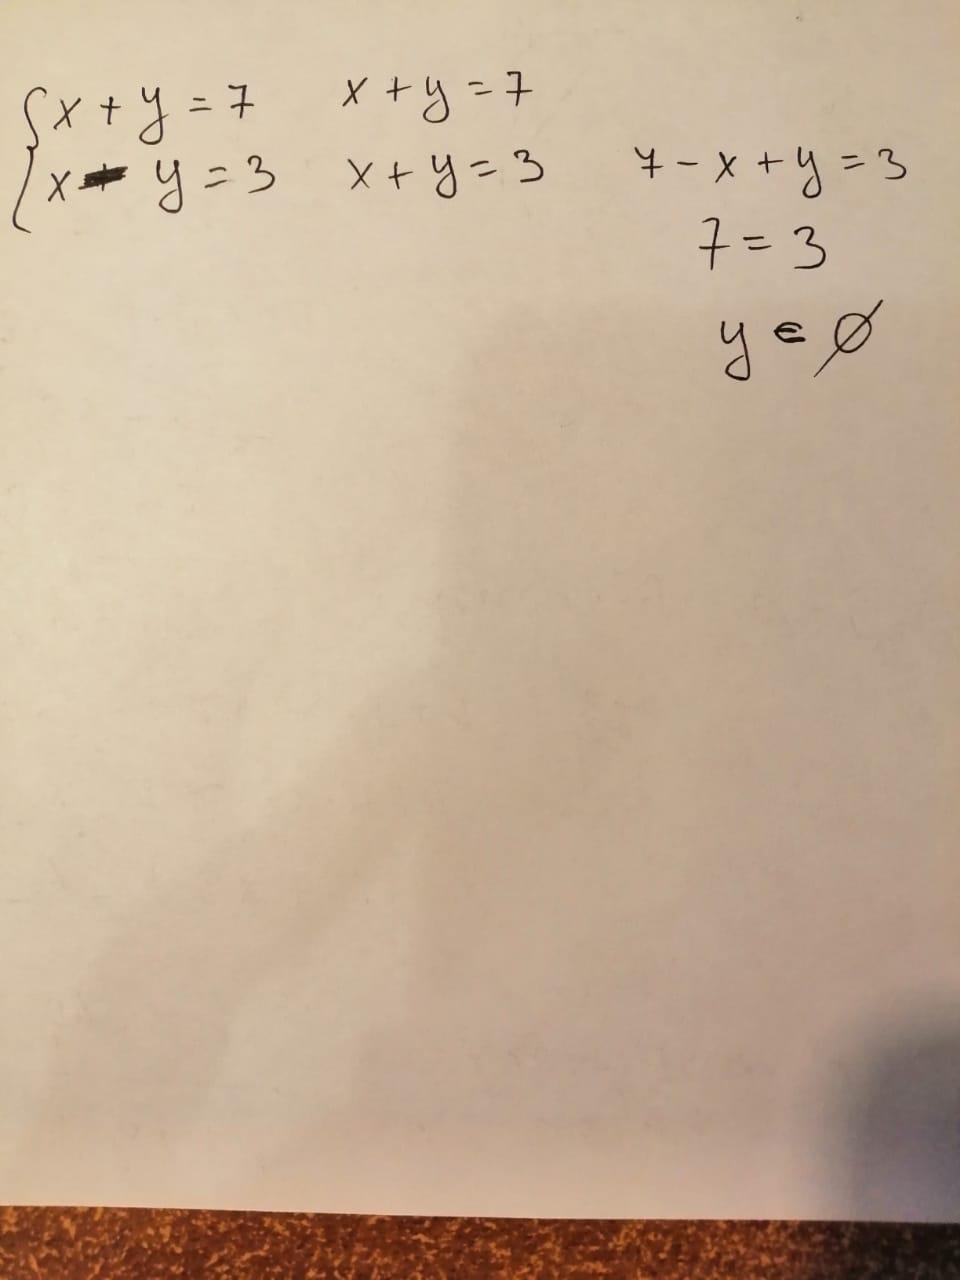 {x + y = 7 x + y = 7
x - y = 3 x + y = 3 7 - x + y = 3
7 = 3
y ∈ ∅